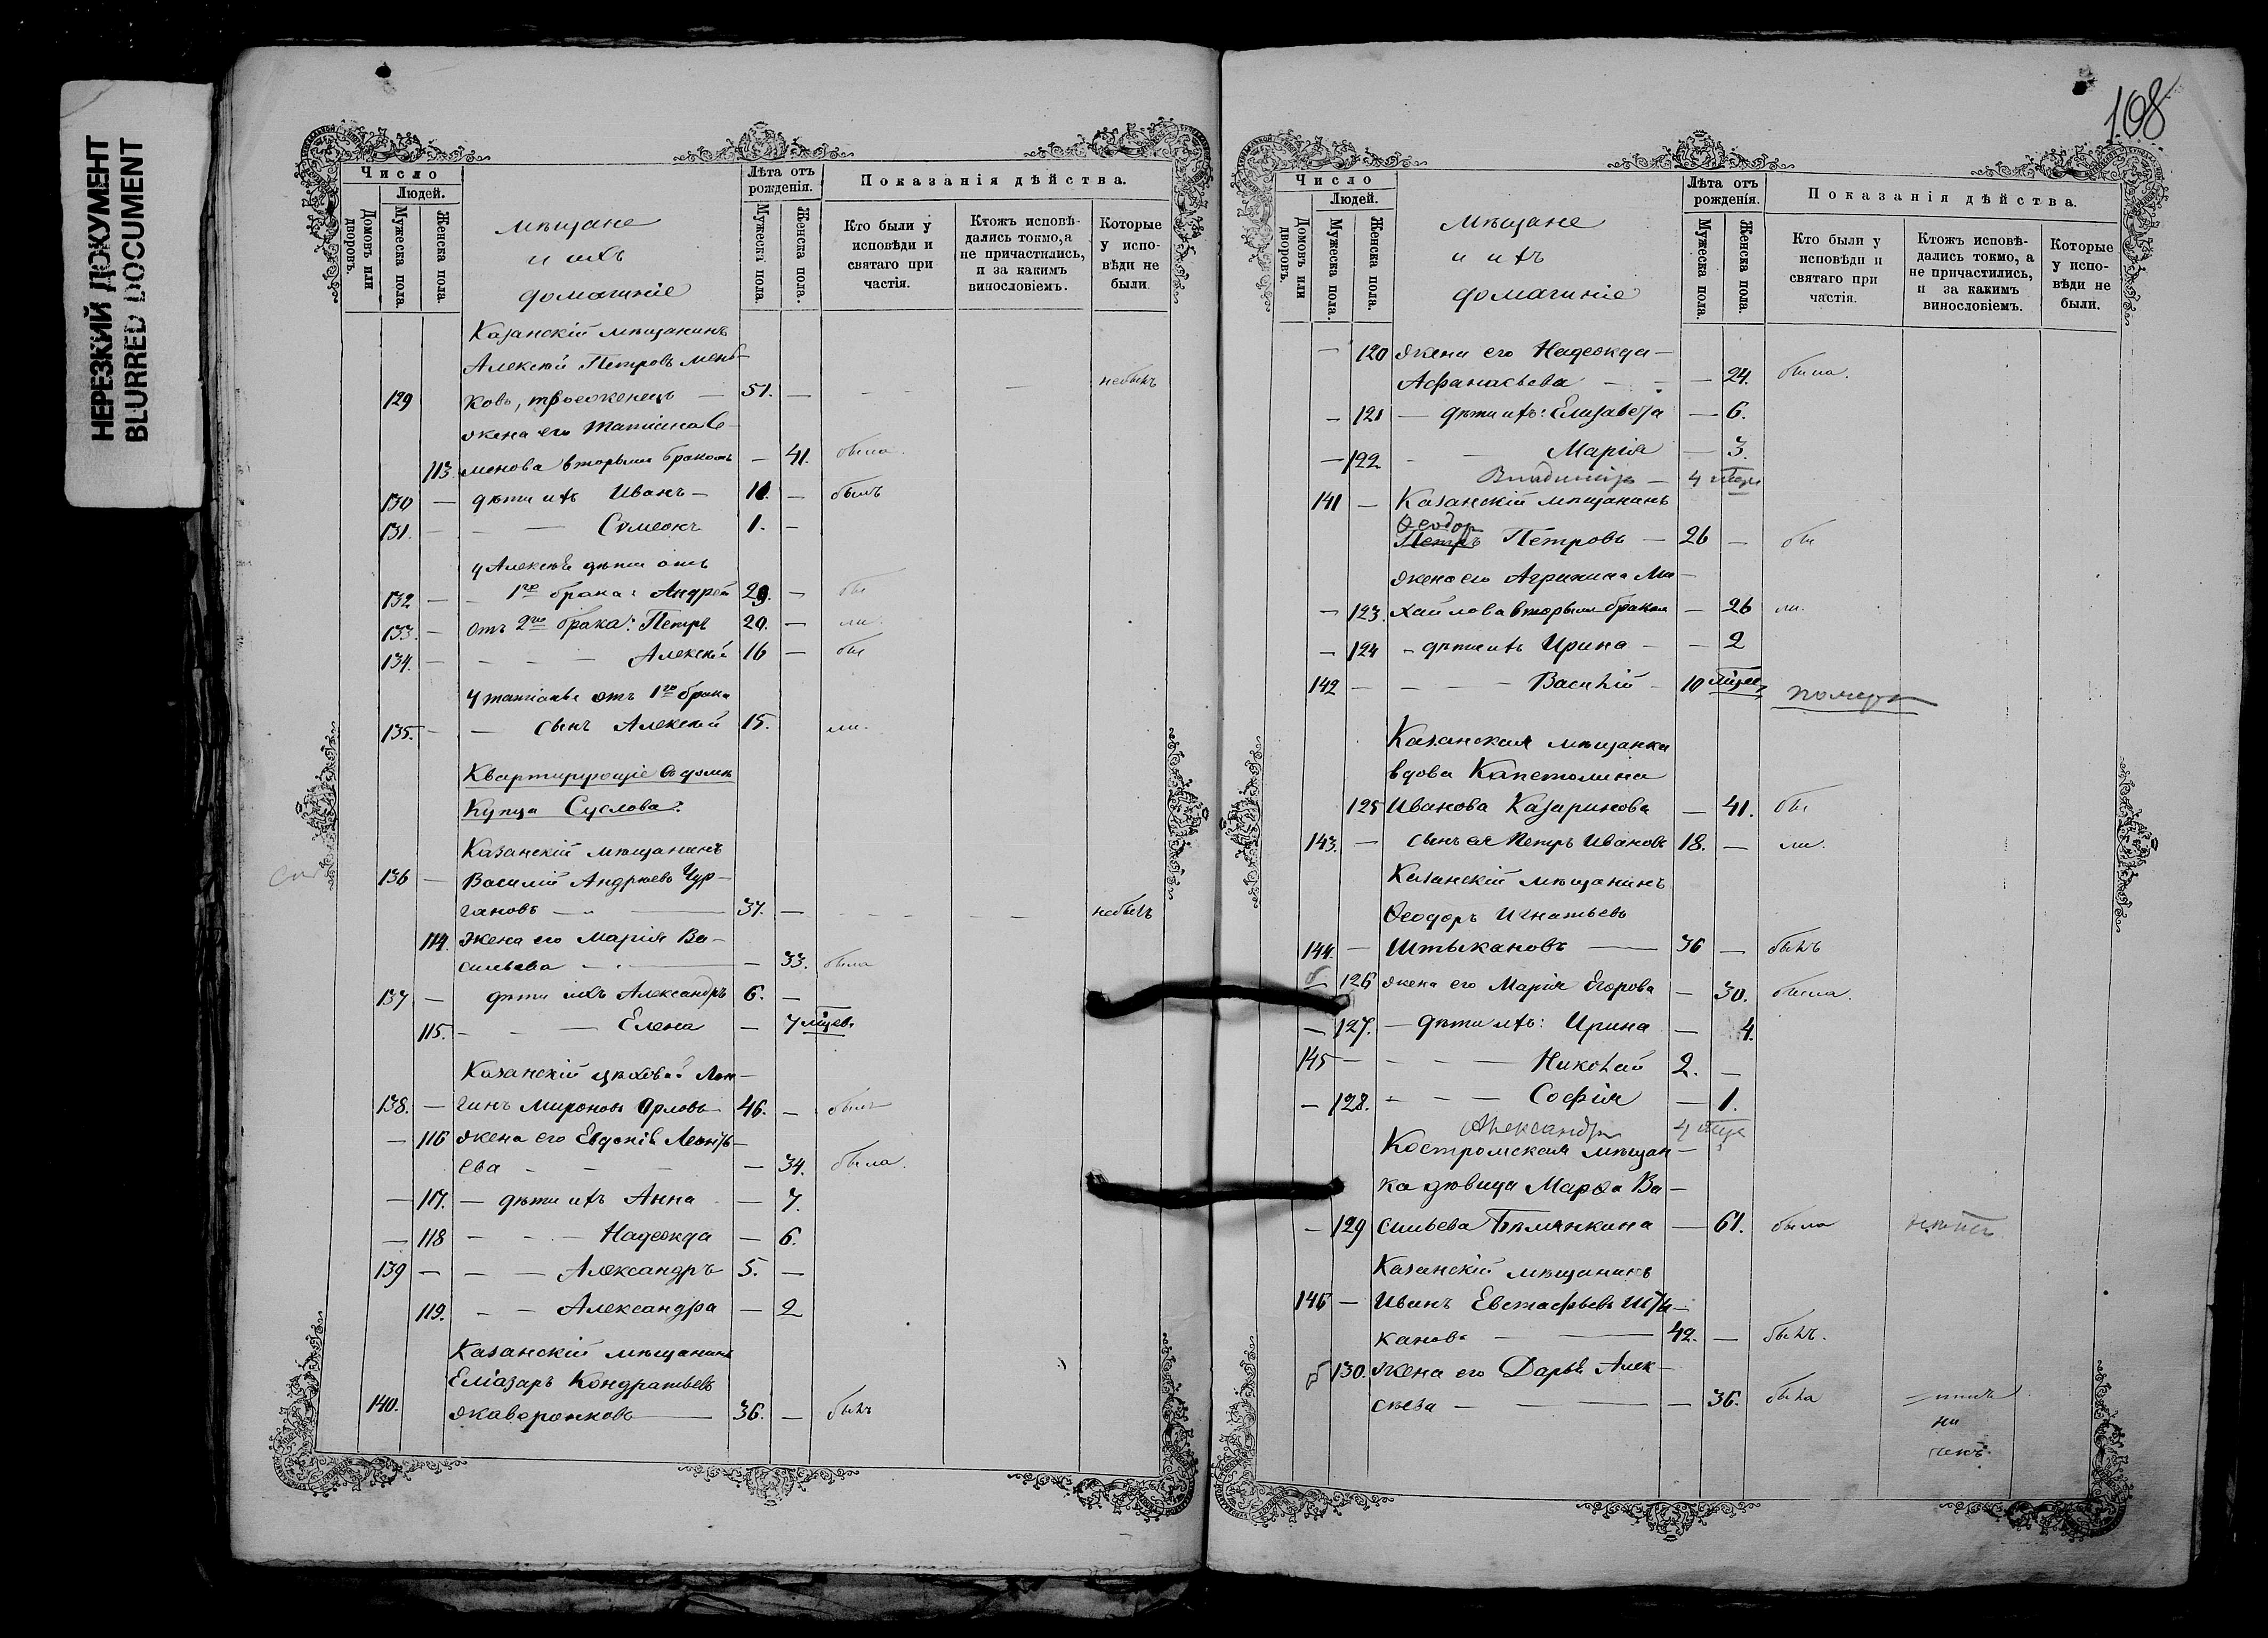 НЕРЕЗКИЙ ДОКУМЕНТ
BLURRED DOCUMENT
Число
Людей.
Домовъ или дворовъ.
Мужеска пола.
Женска пола.
мѣщане
и ихъ
домашніе
Лѣта отъ рожденія.
Мужеска пола.
Женска пола.
Показанія дѣйства.
Кто были у исповѣди и святаго при частія.
Ктожъ исповѣдались токмо, а не причастились, и за какимъ винословіемъ.
Которые у исповѣди не были.
Казанскій мѣщанинъ
Алексій Петровъ Мень-
129 ковъ, троеженецъ — 51. — небылъ
жена его Татіана Се-
113. менова вторымъ бракомъ — 41. была
130 — дѣти ихъ Иванъ — 10. — былъ
131. — — Сѵмеонъ 1. —
у Алексѣя дѣти отъ
132 — — 1го брака: Андрей 29. — бы
133. — отъ 2го брака: Петръ 20. — ли.
134. — — — Алексѣй 16 — бы
у Татіаны отъ 1го брака
135. — — сынъ Алексѣй 15. ли.
Квартирующіе въ домѣ
Купца Суслова:
Казанскій мѣщанинъ
136 — Василій Андреевъ Чур-
гановъ — 37. — небылъ
114. жена его Марія Ва-
сильева — — 33. была
137 — дѣти ихъ Александръ 6. —
115. — — Елена — 7 мѣсев.
Казанскій цѣховой Лон-
138. — гинъ Мироновъ Орловъ — 46. — былъ
— 116 жена его Евдокія Леонть-
ева — — — 34. была.
— 117. — дѣти ихъ Анна — 7.
— 118 — — Надежда — 6.
139 — — — Александръ 5. —
119. — — Александра — 2
Казанскій мѣщанинъ
Еліазаръ Кондратьевъ
140. Жаворонковъ — 36. — былъ
108
Число
Людей.
Домовъ или дворовъ.
Мужеска пола.
Женска пола.
Мѣщане
и ихъ
домашніе
Лѣта отъ рожденія.
Мужеска пола.
Женска пола.
Показанія дѣйства.
Кто были у исповѣди и святаго при частія.
Ктожъ исповѣдались токмо, а не причастились, и за какимъ винословіемъ.
Которые у исповѣди не были.
— 120 жена его Надежда —
Афанасьева — — 24. была.
— 121 — дѣти ихъ: Елизавета — 6.
— 122 — — Марія — 3.
Владиміръ — 4 мѣся
141 — Казанскій мѣщанинъ
Ѳеодор
Петръ Петровъ — 26 — бы
жена его Агрипина Ми-
— 123. хайлова вторымъ бракомъ — 26 ли.
— 124 — дѣти ихъ Ирина — — 2
142 — — — Василій — 10 мѣсев, померъ
Казанская мѣщанка
вдова Капетолина
125 Иванова Казаринова — 41. бы
143. — сынъ ея Петръ Ивановъ 18. — ли.
Казанскій мѣщанинъ
Ѳеодоръ Игнатьевъ
144. — Штыкановъ — 36 — былъ
126 жена его Марія Егорова — 30. была.
— 127. — дѣти ихъ: Ирина — 4.
145 — — — Николай 2. —
— 128. — — — Софія — 1.
Александръ 4 мѣся
Костромская мѣщан-
ка дѣвица Марѳа Ва-
— 129 сильева Бѣлянкина — 61. была
Казанскій мѣщанинъ
146 — Иванъ Евстафьевъ Шты-
кановъ — — 42. — былъ.
130. жена его Дарья Алек-
сѣева — — — 36. была